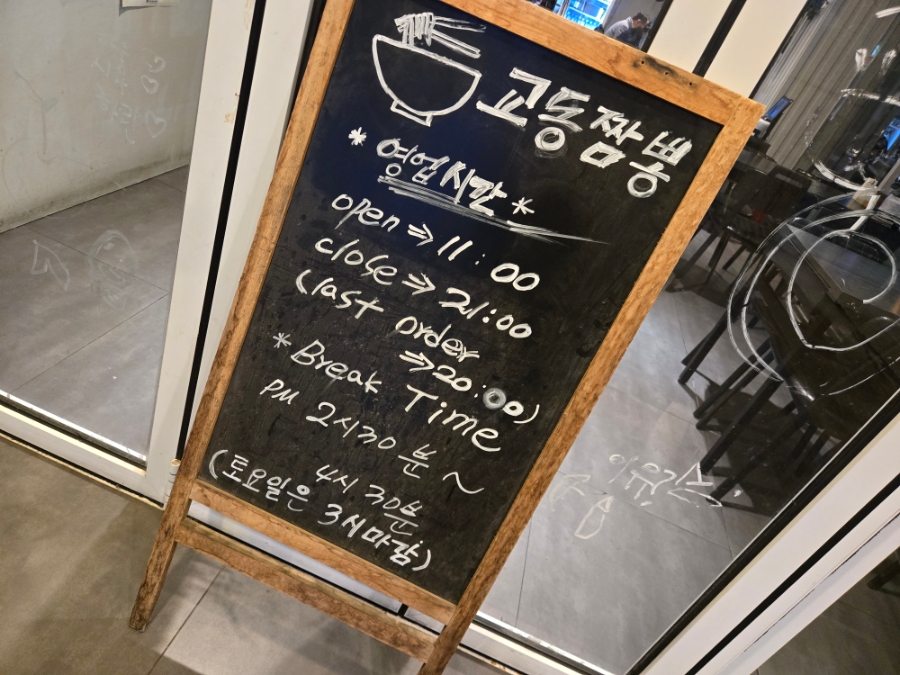 교동짬뽕
* 영업시간 *
open ⇒ 11:00
close ⇒ 21:00
(last order
⇒20:00)
* Break Time
PM 2시30분 ~
4시 30분
(토요일은 3시마감)